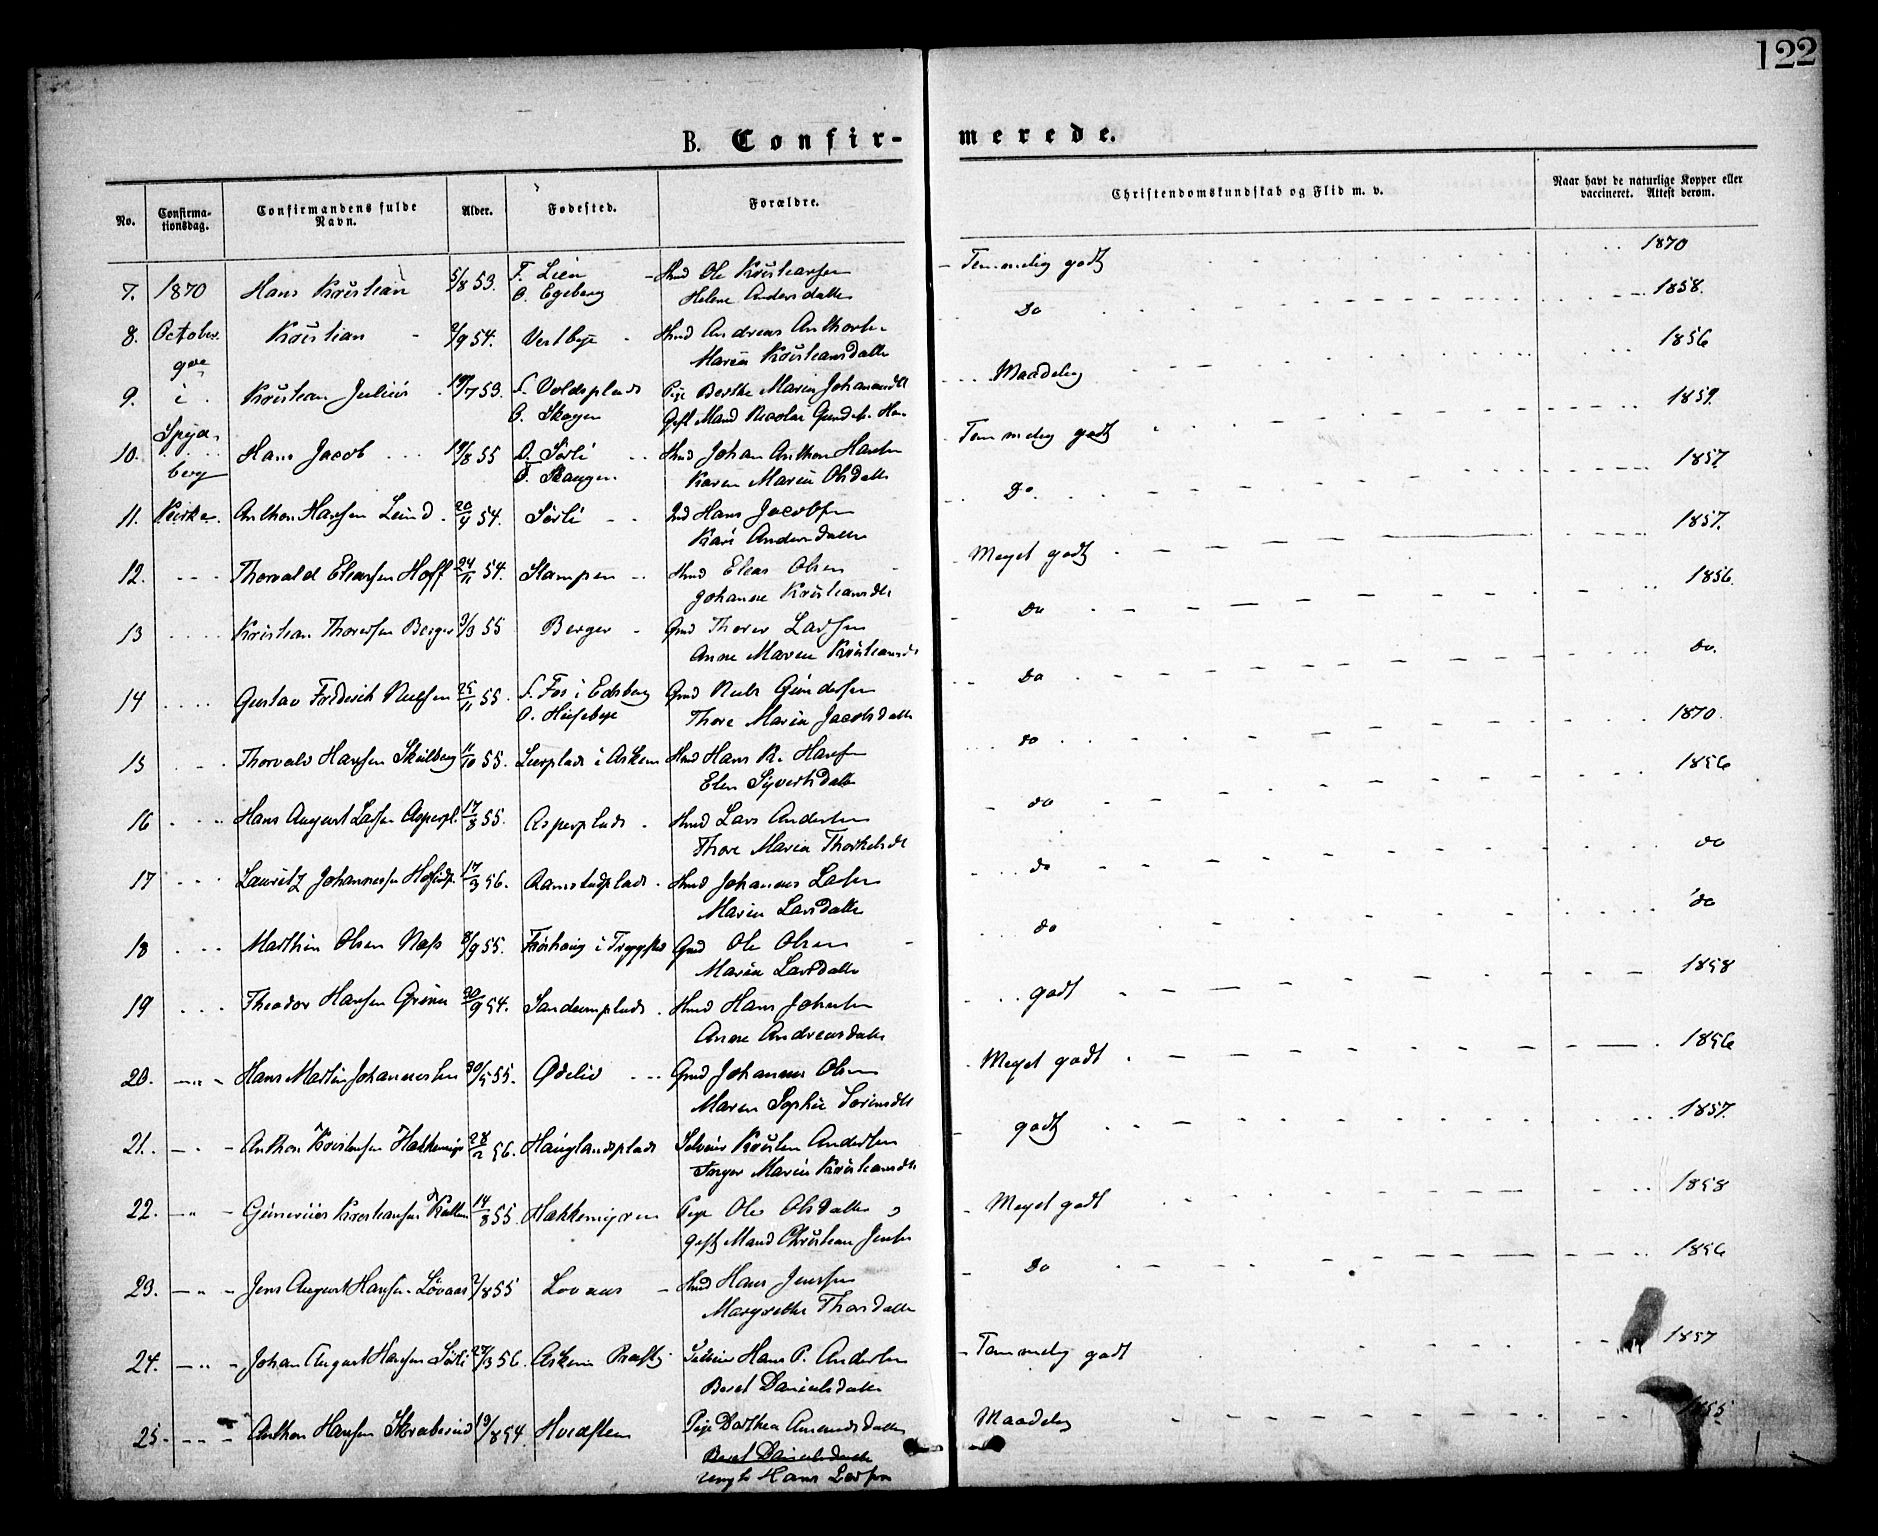 122
B. Confir-
merede.
No.
Confirma-
tionsdag.
Confirmandens fulde
Navn.
Alder.
Fødested.
Forældre.
Christendomskundskab og Flid m. v.
Naar havt de naturlige Kopper eller
vaccineret. Attest derom.
7. 1870 Hans Kristian 5/8 53. F. Lien Hmd Ole Kristiansen Temmelig godt 1870
O. Egeberg Helene Andersdatter
8. October Kristian 2/9 54. Vestbye Hmd Andreas Anthons. Do 1858.
9de Maria Kristiansdatter
9. i Kristian Julius 19/7 53. F. Voldsplads Pige Berthe Maria Johannesdt Maadelig 1856
O. Skogen Gift Mand Nicolai
Spyd-
10. Hans Jacob 19/8 55 O. Sørli Hmd Johan Anthon Hansen Temmelig godt 1859.
berg F. Skaugen Karen Maria Olsdatter
11. Kirke. Anthon Hansen Lund 20/4 54. Sørli Ind Hans Jacobsen Do. 1857
Kari Andersdatter
12. Thorvald Eliassen Hoff 24/11 54. Stampen Hmd Elias Olsen Meget godt 1857.
Johanne Kristiansdt
13 Kristian Thoresen Berger 3/3 55 Berger Gmd Thorer Larsen Do 1856.
Anne Maren Kristiansdt
14 Gustav Frederik Nielsen 25/11 55. F. Fos i Edsberg Gmd Niels Gundersen Do do.
O. Huseby Thore Maria Jacobsdatter
15 Thorvald Hansen Skulberg 11/10 55. Lierplads i Askim Hmd Hans R. Hansen do 1870.
Elen Syvertsdatter
16 Hans August Larsen Asperpl. 17/8 55. Asperplads Hmd Lars Andersen do 1856
Thore Maria Thorkelsdt
17 Lauritz Johannessen 17/3 56. Ramstadplads Hmd Johannes Larsen do do
Maria Larsdatter
18 Marthin Olsen Næss 8/9 55. i Trygstad Gmd Ole Olsen do do
Maria Larsdatter
19 Theodor Hansen Grønn 30/9 54. Sandemplads Hmd Hans Johnsen godt 1858
Anne Andreasdatter
20. Hans Martin Johannessen 30/5 55. Ødelid Gmd Johannes Olsen Meget godt 1856
Maren Sophie Sørensdt
21. Anthon Kristensen Hakkemyr 28/2 56. Hauglandsplads Selveier Kristen Andersen godt 1857.
Inger Maria Kristiansdt
22. Gunerius Kristiansen 14/8 55. Hakkemyren Pige Olea Olsdatter Meget godt 1858
gift Mand Christian Jensen
23. Jens August Hansen Løvaas 2/8 55 Lovaas Hmd Hans Jensen Do 1856
Margrethe Thorsdatter
24. Johan August Hansen Sørli 27/3 56. Askim Præstg Selveier Hans P. Andersen Temmelig godt 1857
Beret Danielsdatter
25. Anthon Hansen Skraberud 19/8 54 Hvedsten Pige Dorthea Amundsdatter Maadelig 1855
Beret Danielsdatter
ungk Hans Larsen